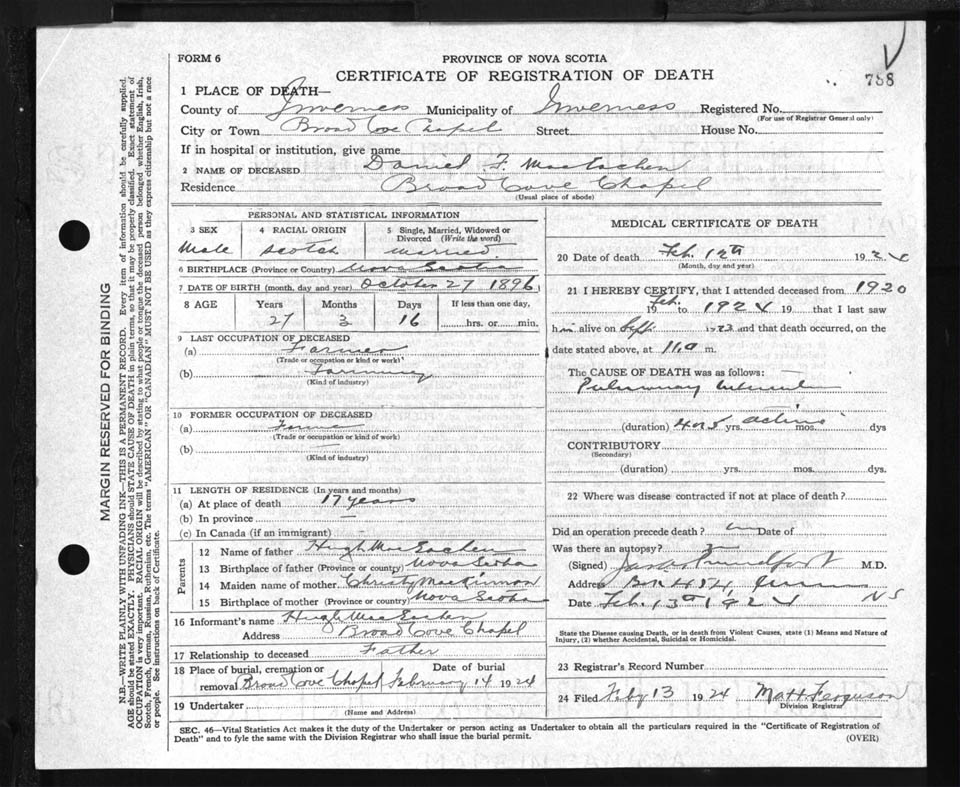 FORM 6
PROVINCE OF NOVA SCOTIA
CERTIFICATE OF REGISTRATION OF DEATH
788
1 PLACE OF DEATH—
County of Inverness Municipality of Inverness Registered No.
(For use of Registrar General only)
City or Town Broad Cove Chapel Street House No.
If in hospital or institution, give name
2 NAME OF DECEASED Daniel F. MacEachen
Residence Broad Cove Chapel
(Usual place of abode)
PERSONAL AND STATISTICAL INFORMATION
3 SEX 4 RACIAL ORIGIN 5 Single, Married, Widowed or Divorced (Write the word)
Male Scotch Married
6 BIRTHPLACE (Province or Country) Nova Scotia
7 DATE OF BIRTH (month, day and year) October 27 1896
8 AGE Years Months Days If less than one day,
27 3 16 hrs. or min.
9 LAST OCCUPATION OF DECEASED
(a) Farmer
(Trade or occupation or kind of work)
(b) Farming
(Kind of industry)
10 FORMER OCCUPATION OF DECEASED
(a)
(Trade or occupation or kind of work)
(b)
(Kind of industry)
11 LENGTH OF RESIDENCE (In years and months)
(a) At place of death 17 years
(b) In province —
(c) In Canada (if an immigrant) —
Parents
12 Name of father Hugh MacEachen
13 Birthplace of father (Province or country) Nova Scotia
14 Maiden name of mother Christy MacKinnon
15 Birthplace of mother (Province or country) Nova Scotia
16 Informant's name Hugh MacEachen
Address Broad Cove Chapel
17 Relationship to deceased Father
18 Place of burial, cremation or removal Date of burial
Broad Cove Chapel February 14 1924
19 Undertaker
(Name and Address)
MEDICAL CERTIFICATE OF DEATH
20 Date of death Feb. 12th 1924
(Month, day and year)
21 I HEREBY CERTIFY, that I attended deceased from 1920
19 to Feb. 1924 19 that I last saw
him alive on Sept 1923 and that death occurred, on the
date stated above, at 11 a m.
The CAUSE OF DEATH was as follows:
Pulmonary
(duration) 4 or 5 yrs. mos. dys
CONTRIBUTORY
(Secondary)
(duration) yrs. mos. dys.
22 Where was disease contracted if not at place of death?
Did an operation precede death? Date of
Was there an autopsy?
(Signed) M.D.
Address Box 434 NS
Date Feb. 13th 1924
State the Disease causing Death, or in death from Violent Causes, state (1) Means and Nature of
Injury, (2) whether Accidental, Suicidal or Homicidal.
23 Registrar's Record Number
24 Filed Feb 13 1924 Matt Ferguson
Division Registrar
SEC. 46—Vital Statistics Act makes it the duty of the Undertaker or person acting as Undertaker to obtain all the particulars required in the "Certificate of Registration of
Death" and to fyle the same with the Division Registrar who shall issue the burial permit.
(OVER)
MARGIN RESERVED FOR BINDING
N.B.—WRITE PLAINLY WITH UNFADING INK—THIS IS A PERMANENT RECORD. Every item of information should be carefully supplied.
AGE should be stated EXACTLY. PHYSICIANS should STATE CAUSE OF DEATH in plain terms, so that it may be properly classified. Exact statement of
OCCUPATION is very important. RACIAL ORIGIN will be described by stating to what people or tongue the deceased person belonged whether English, Irish,
Scotch, French, German, Russian, Ruthenian, etc. The terms "AMERICAN" OR "CANADIAN" MUST NOT BE USED as they express citizenship but not a race
or people. See instructions on back of Certificate.